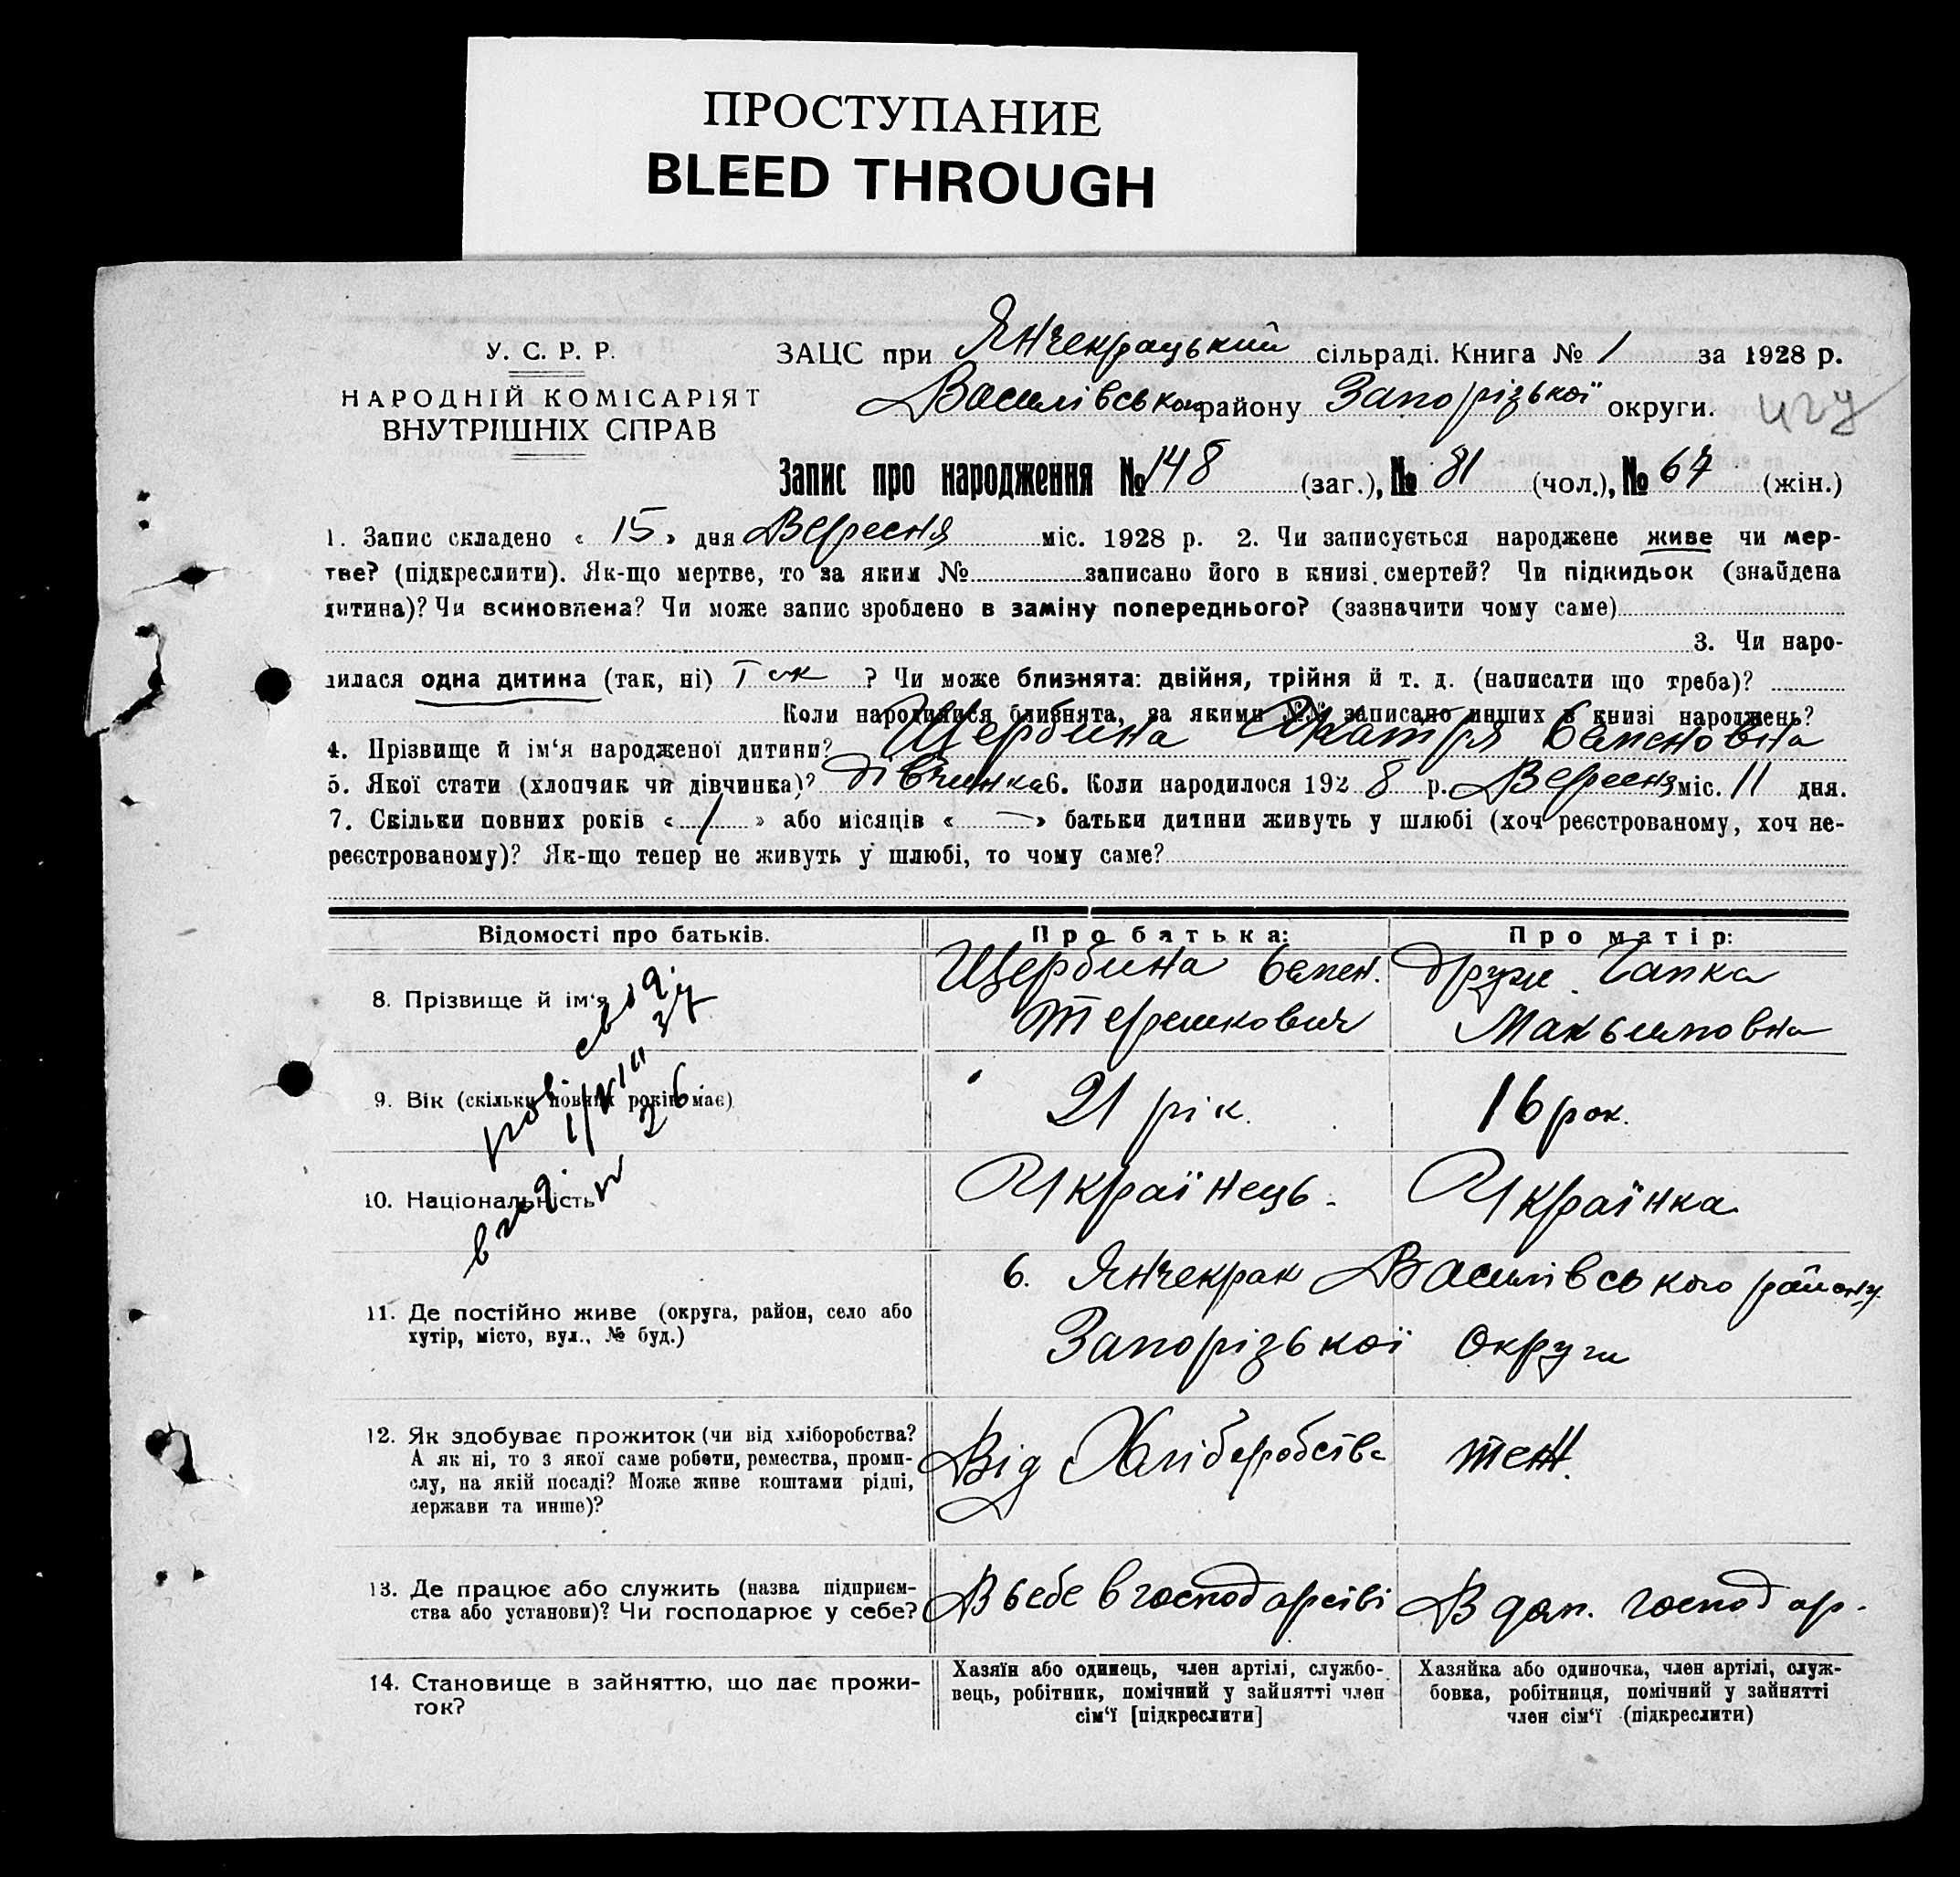 ПРОСТУПАНИЕ
BLEED THROUGH
У. С. Р. Р.
НАРОДНІЙ КОМІСАРІЯТ
ВНУТРІШНІХ СПРАВ
ЗАЦС при Янчекрацький сільраді. Книга № 1 за 1928 р.
Василівського району Запорізької округи.
Запис про народження № 148 (заг.), № 81 (чол.), № 67 (жін.)
1. Запис складено « 15 » дня Вересня міс. 1928 р. 2. Чи записується народжене живе чи мер-
тве? (підкреслити). Як-що мертве, то за яким № записано його в книзі смертей? Чи підкидьок (знайдена
дитина)? Чи всиновлена? Чи може запис зроблено в заміну попереднього? (зазначити чому саме)
3. Чи наро-
дилася одна дитина (так, ні) Так ? Чи може близнята: двійня, трійня й т. д. (написати що треба)?
Коли народилися близнята, за якими №№ записано инших в книзі народжень?
4. Прізвище й ім‘я народженої дитини? Щербина
5. Якої стати (хлопчик чи дівчинка)? дівчинка 6. Коли народилося 1928 р. Вересня міс. 11 дня.
7. Скільки повних років « 1 » або місяців « — » батьки дитини живуть у шлюбі (хоч реєстрованому, хоч не-
реєстрованому)? Як-що тепер не живуть у шлюбі, то чому саме?
Відомості про батьків.
Про батька:
Про матір:
8. Прізвище й ім‘я
Щербина Семен.
Терешкович
друж. Гапка
Максимовна
9. Вік (скільки повних років має)
21 рік.
16 рок.
10. Національність
Українець.
Українка
11. Де постійно живе (округа, район, село або
хутір, місто, вул., № буд.)
с. Янчекрак Василівського району
Запорізької Округи
12. Як здобуває прожиток (чи від хліборобства?
А як ні, то з якої саме роботи, ремества, проми-
слу, на якій посаді? Може живе коштами рідні,
держави та инше)?
Від Хліборобства
теж.
13. Де працює або служить (назва підприєм-
ства або установи)? Чи господарює у себе?
В себе в господарстві
В дом. господар.
14. Становище в зайняттю, що дає прожи-
ток?
Хазяїн або одинець, член артілі, службо-
вець, робітник, помічний у зайнятті член
сім‘ї [підкреслити]
Хазяйка або одиночка, член артілі, служ-
бовка, робітниця, помічний у зайнятті
член сім‘ї (підкреслити)